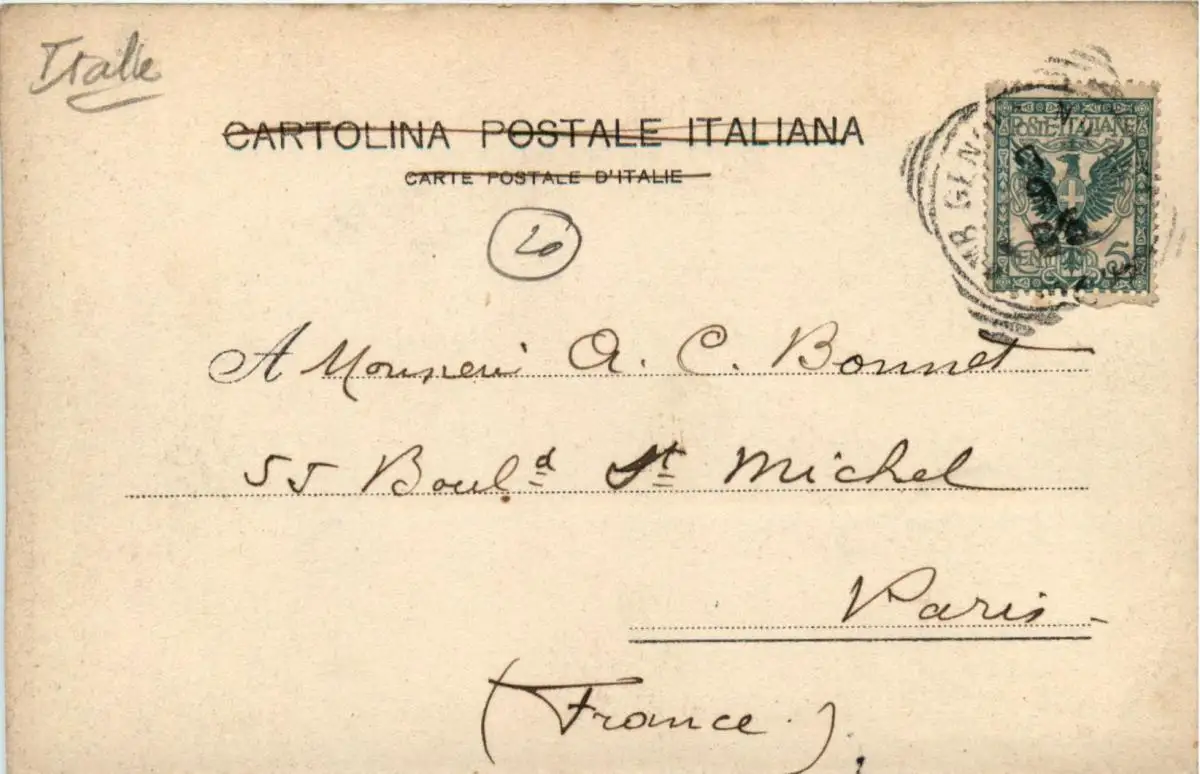 Italie
CARTOLINA POSTALE ITALIANA
CARTE POSTALE D'ITALIE
20
POSTE ITALIANE
CENT. 5
A Monsieur A. C. Bonnet
55 Boul.d St Michel
Paris
(France.)